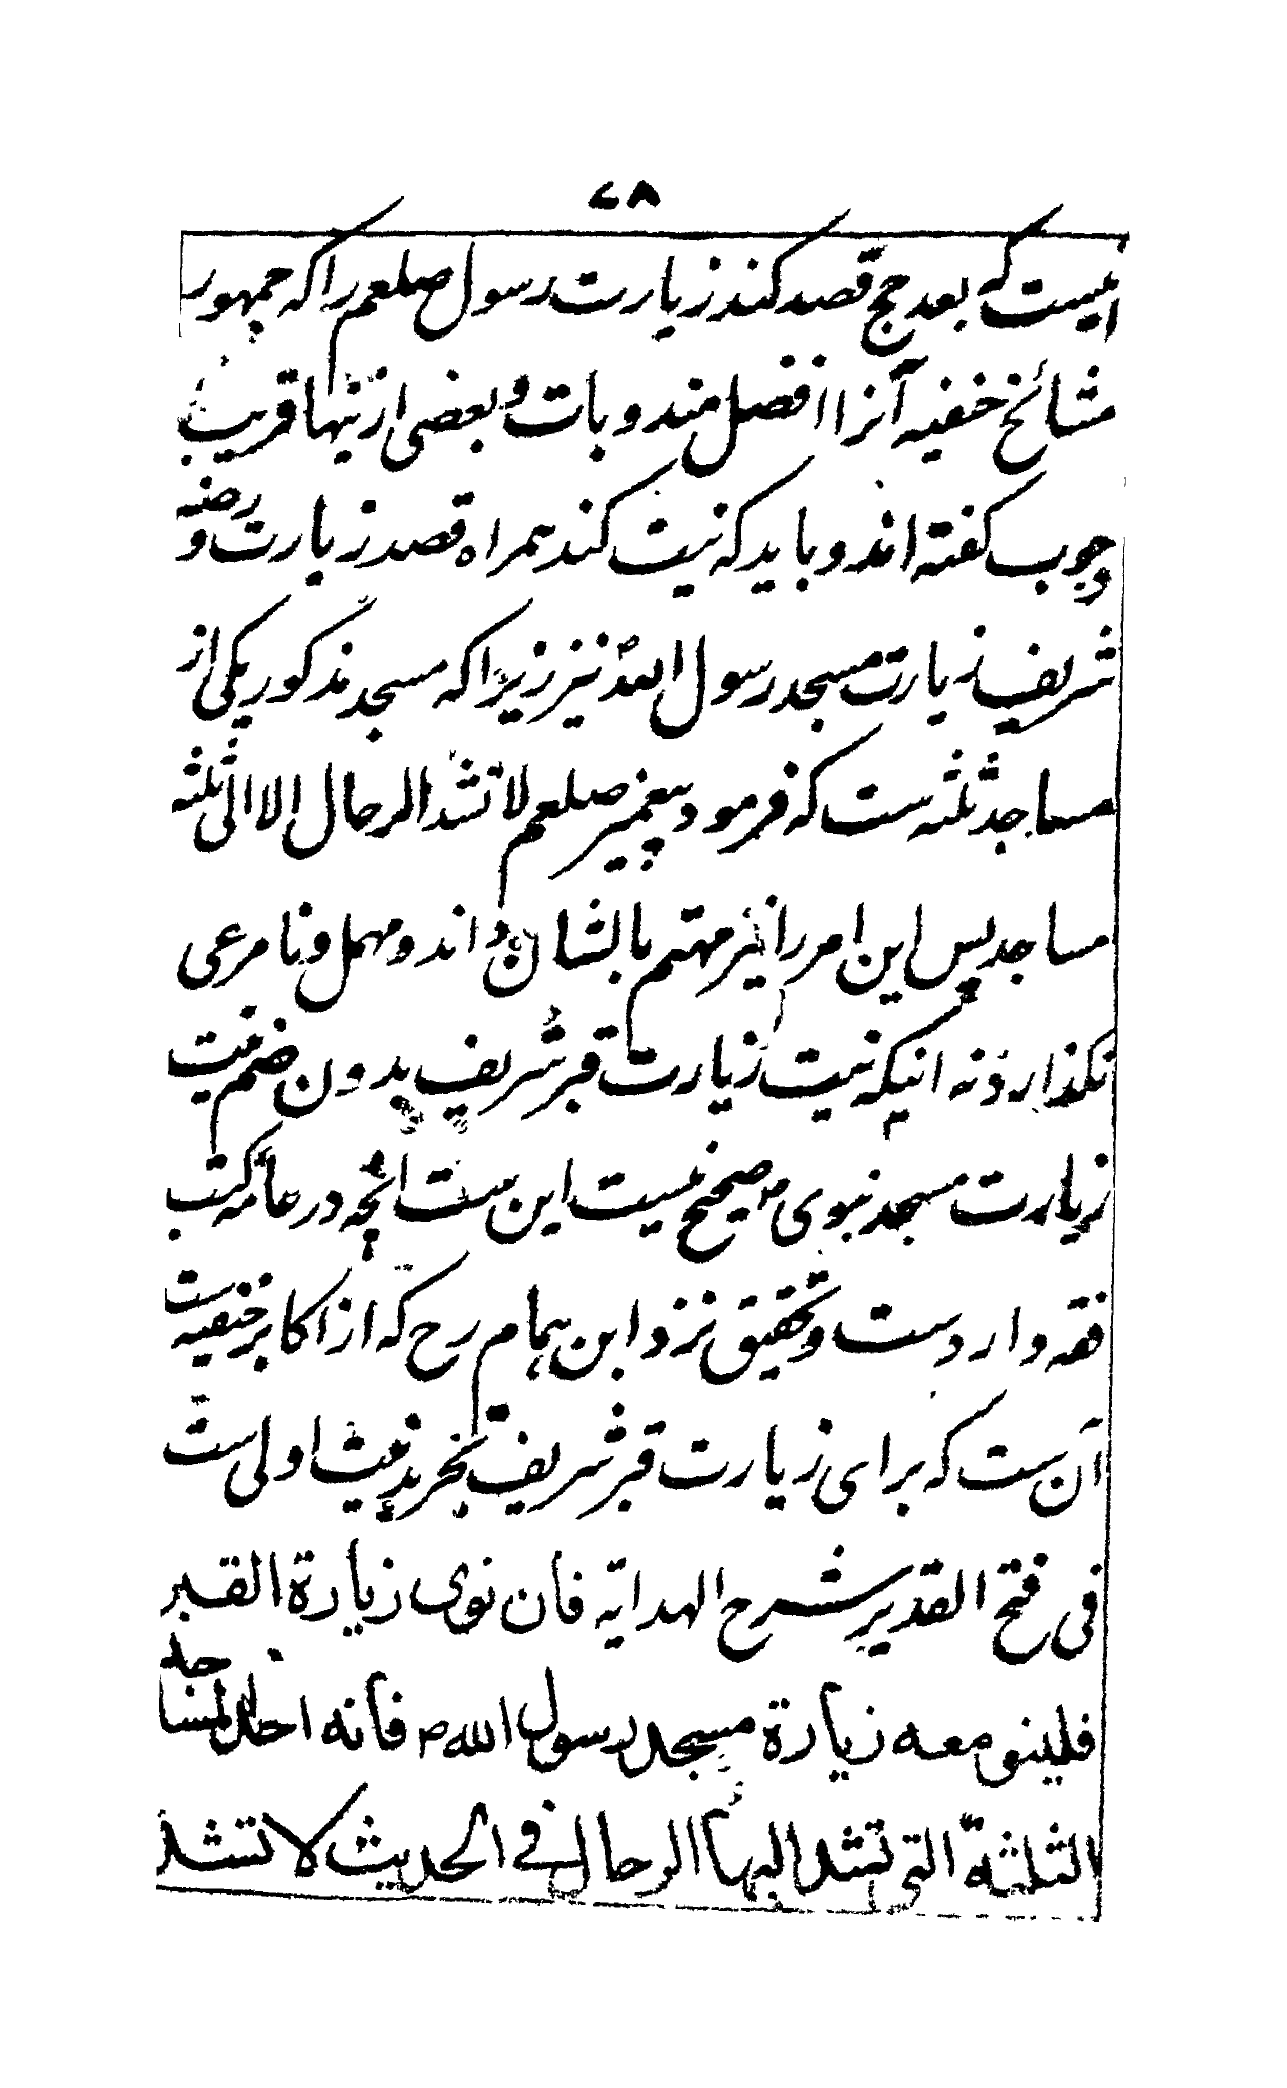 ٧٨
اینست که بعد حج قصد کند زیارت رسول صلعم را که جمهور
مشائخ حنفیه آنرا افضل مندوبات و بعضی ازینها قریب
وجوب گفته اند و باید که نیت کند همراه قصد زیارت روضه
شریف زیارت مسجد رسول الله نیز زیرا که مسجد مذکور یکی از
مساجد ثلثه ست که فرمود پیغمبر صلعم لا تشد الرحال الا الی ثلثه
مساجد پس این امر را نیز مهتم بالشان داند و مهمل و نا مرعی
نگذارد و نه اینکه نیت زیارت قبر شریف بدون ضم نیت
زیارت مسجد نبوی صحیح نیست این ست آنچه در عامه کتب
فقه وارد ست و تحقیق نزد ابن همام رح که از اکابر حنفیه ست
آن ست که برای زیارت قبر شریف تجرید نیت اولی ست
فی فتح القدیر شرح الهدایه فان نوی زیارة القبر
فلینو معه زیارة مسجد رسول الله ص فانه احد المساجد
الثلثة التی تشد الیها الرحال فی الحدیث لا تشد